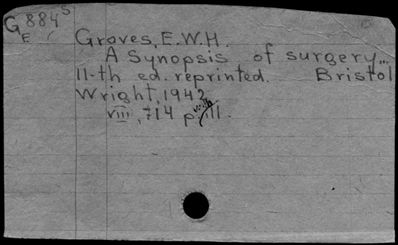 G 884 S
E
Groves, E.W.H.
A Synopsis of surgery...
11-th ed. reprinted. Bristol
Wright, 1942
viii, 714 p. ill.